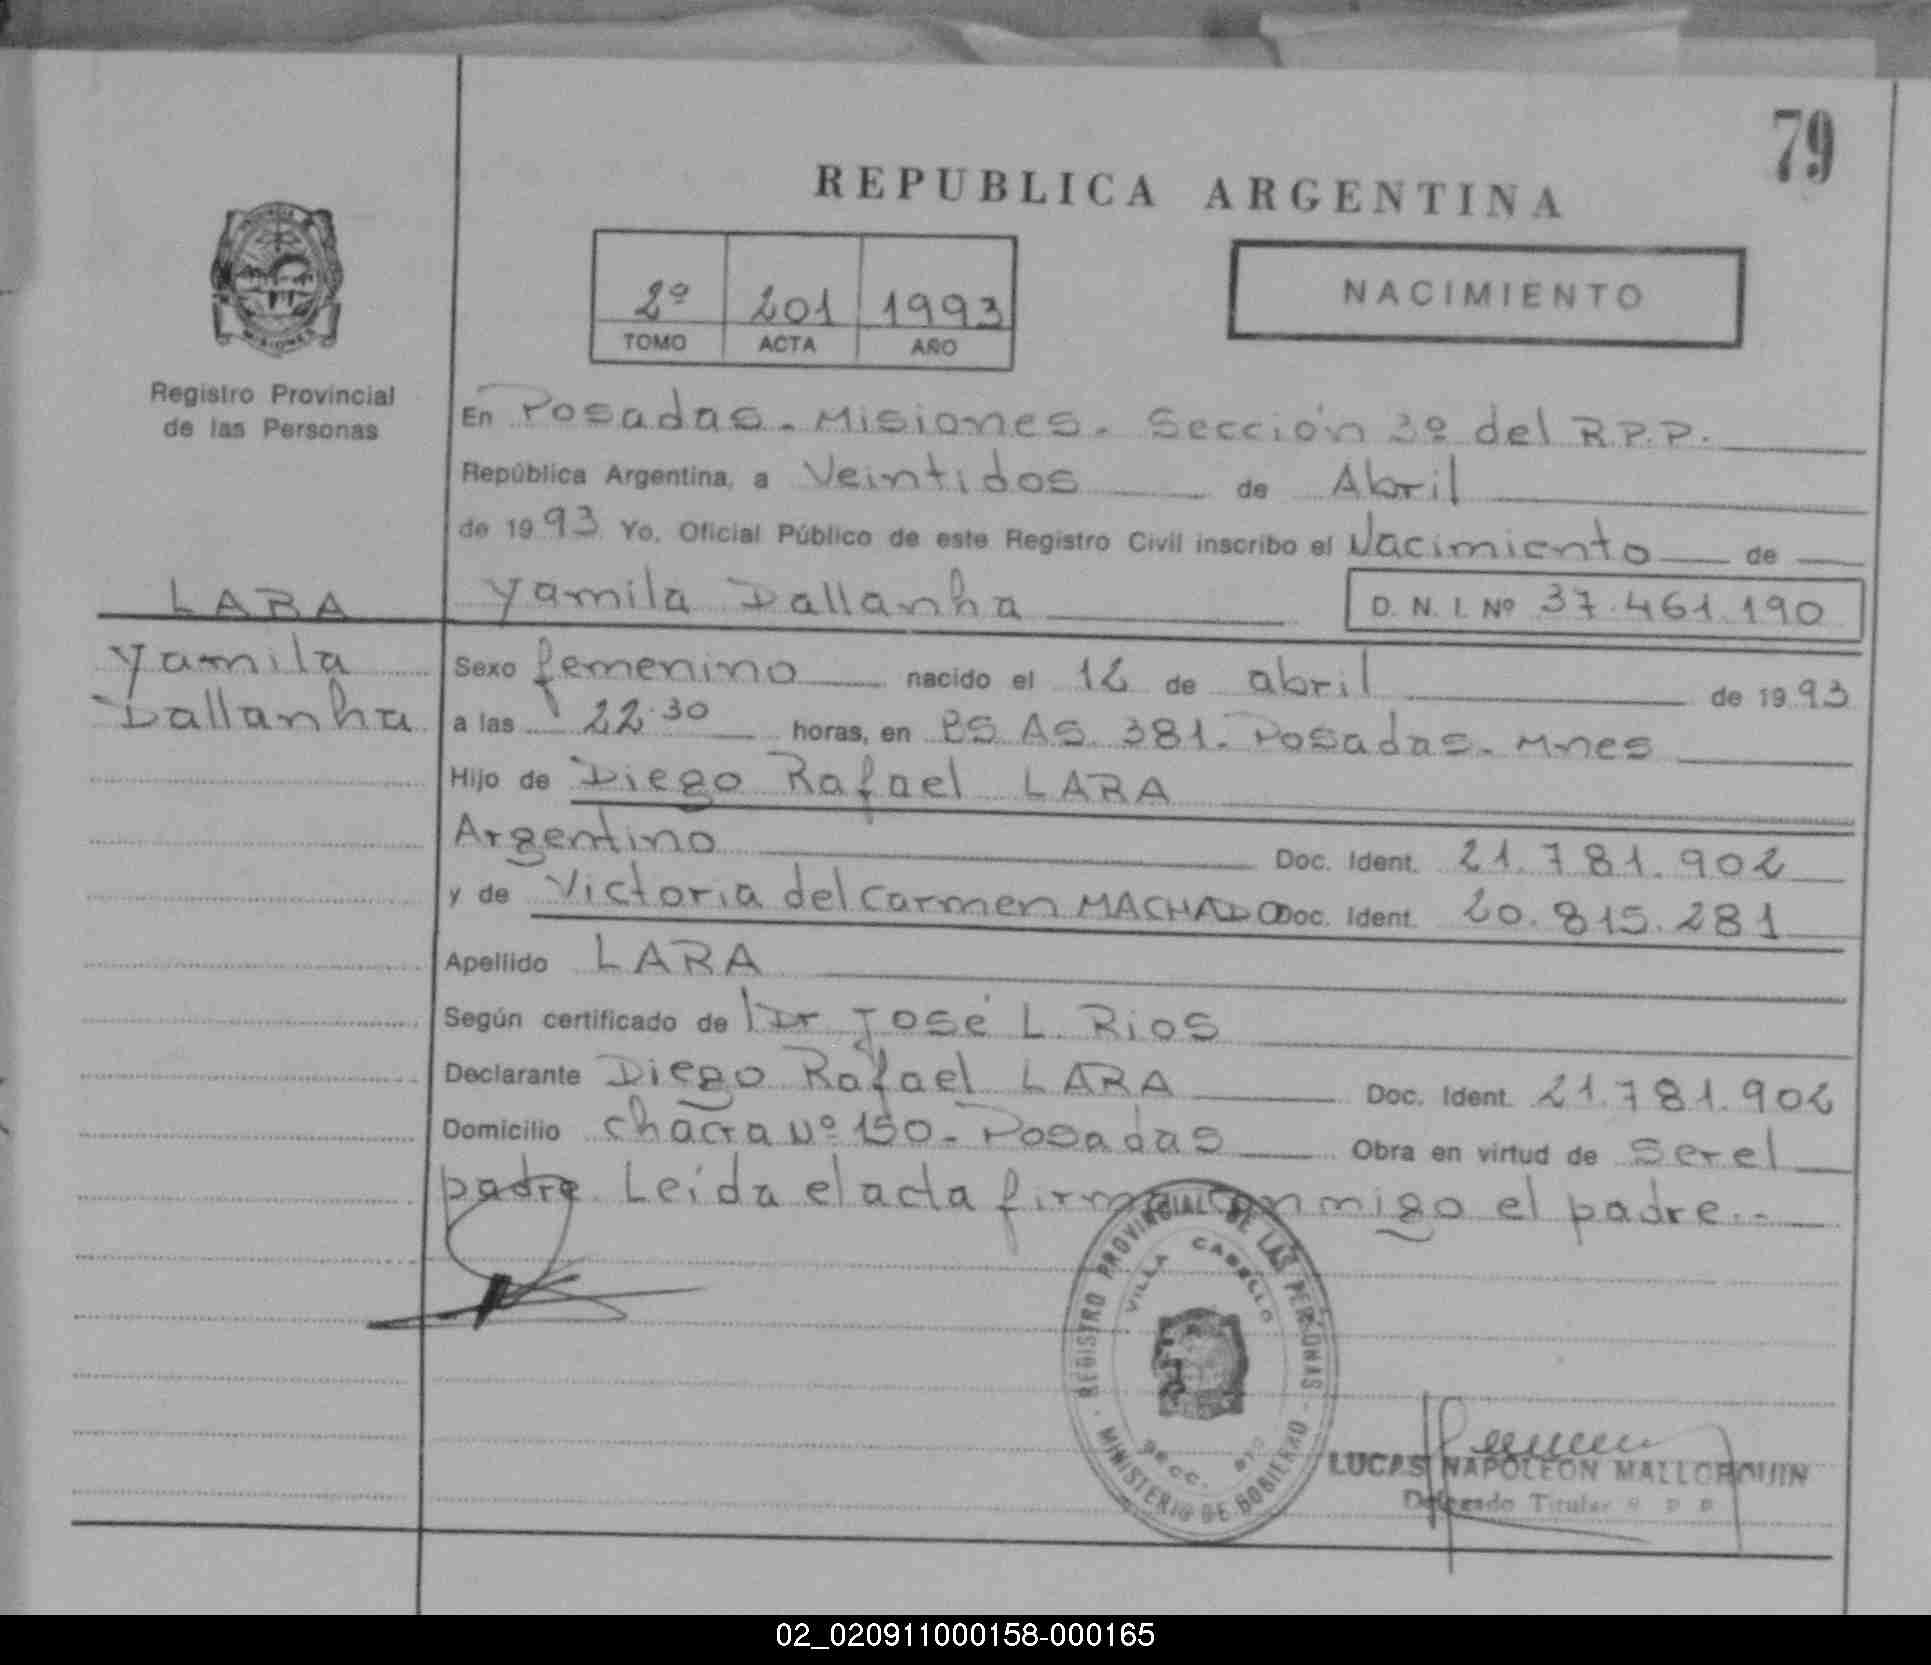 79
REPUBLICA ARGENTINA
2º 201 1993
TOMO ACTA AÑO
NACIMIENTO
MISIONES
Registro Provincial
de las Personas
En Posadas - Misiones. Sección 3º del R.P.P.
República Argentina, a Veintidos de Abril
de 1993 Yo, Oficial Público de este Registro Civil inscribo el Nacimiento de
LARA
Yamila Dallanha D. N. I. Nº 37.461.190
Yamila
Dallanha
Sexo femenino nacido el 12 de abril de 1993
a las 22.30 horas, en BS AS. 381. Posadas - Mnes
Hijo de Diego Rafael LARA
Argentino Doc. Ident. 21.781.902
y de Victoria del Carmen MACHADO Doc. Ident. 20.815.281
Apellido LARA
Según certificado de Dr José L. Rios
Declarante Diego Rafael LARA Doc. Ident. 21.781.902
Domicilio Chacra Nº 150 - Posadas Obra en virtud de ser el
padre. Leída el acta firma conmigo el padre.-
REGISTRO PROVINCIAL DE LAS PERSONAS
VILLA CABELLO
SECC.
MINISTERIO DE GOBIERNO
LUCAS NAPOLEON MALLORQUIN
Delegado Titular R P P
02_020911000158-000165